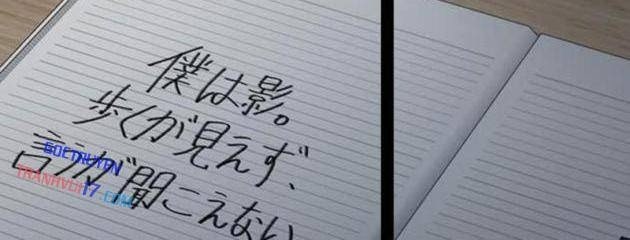 僕は影。
歩くが見えず、
言うが聞こえない
GOCTRUYEN
TRANHVUI
17
.COM